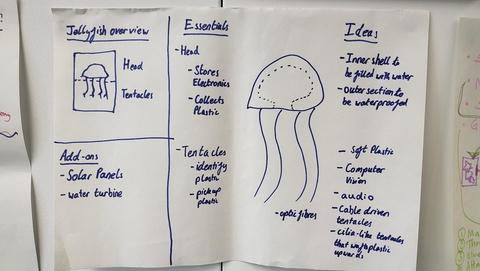 Jellyfish overview
Head
Tentacles
Add-ons
- Solar Panels
- water turbine
Essentials
- Head
- Stores
Electronics
- Collects
Plastic
- Tentacles
- identify
plastic
- pick up
plastic
- optic fibres
Ideas
- Inner shell to
be filled with water
- outer section to
be waterproofed
- Soft Plastic
- Computer
Vision
- audio
- Cable driven
tentacles
- cilia-like tentacles
that waft plastic
upwards